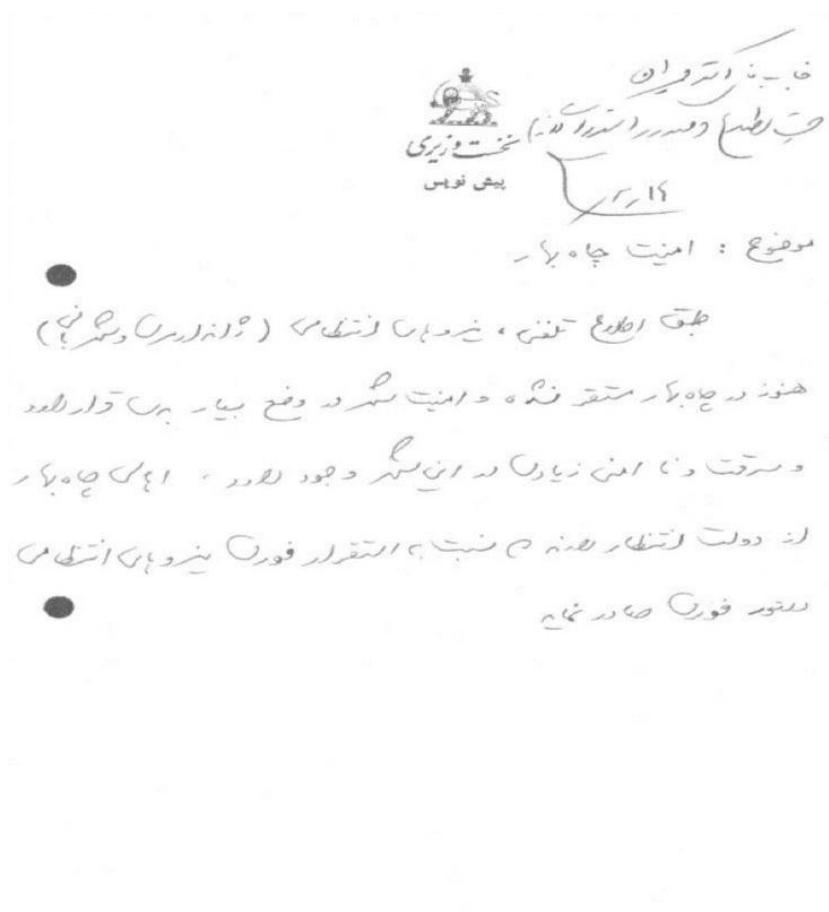 جهت اطلاع و صدور دستورات لازم
نخست وزیری
پیش نویس
موضوع : امنیت چاه بهار
طبق اطلاع تلفنی ، نیروهای انتظامی (ژاندارمری و شهربانی)
هنوز در چاه بهار مستقر نشده و امنیت شهر در وضع بسیار بدی قرار دارد
و سرقت و نا امنی زیادی در این شهر وجود دارد . اهالی چاه بهار
از دولت انتظار دارند که نسبت به استقرار فوری نیروهای انتظامی
دستور فوری صادر نماید